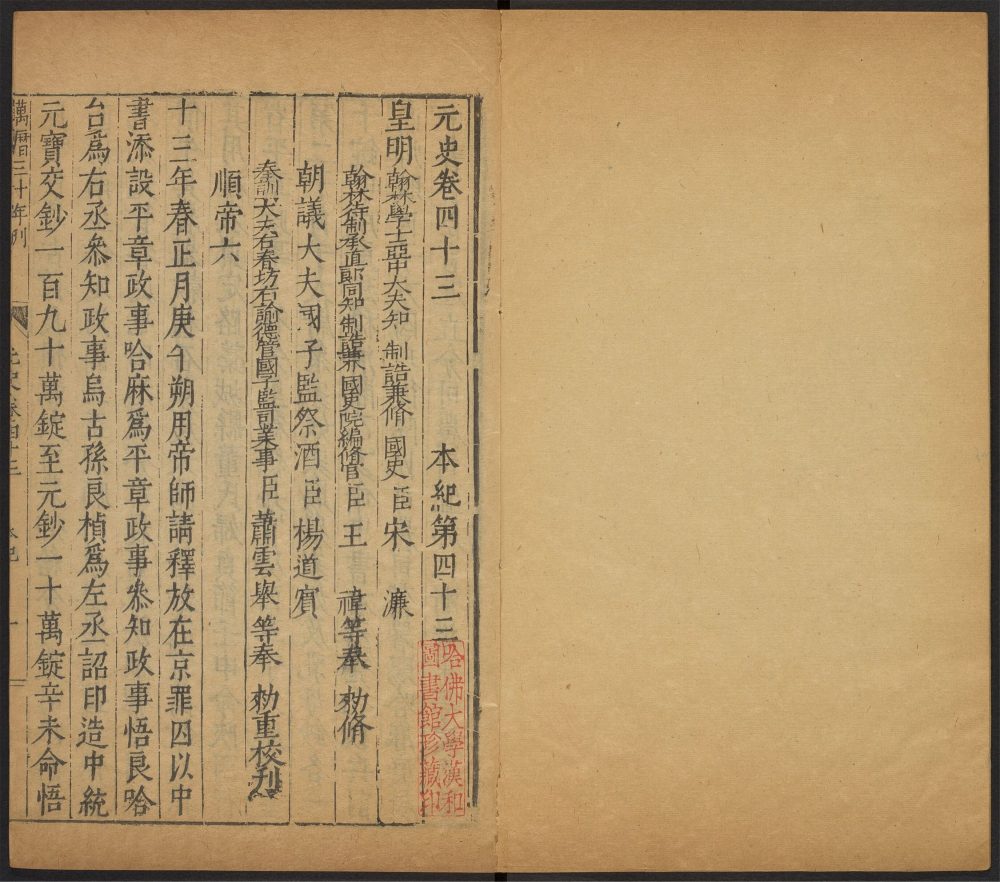 元史卷四十三　本紀第四十三
皇明翰林學士亞中大夫知 制誥兼脩 國史臣宋 濂
翰林待制承直郎同知制誥兼國史院編脩官臣王 禕等奉 勑脩
朝議大夫國子監祭酒臣楊道賓
奉訓大夫右春坊右諭德管國子監司業事臣蕭雲舉等奉 勑重校刊
順帝六
十三年春正月庚午朔用帝師請釋放在京罪囚以中
書添設平章政事哈麻爲平章政事叅知政事悟良哈
台爲右丞叅知政事烏古孫良楨爲左丞詔印造中統
元寶交鈔一百九十萬錠至元鈔一十萬錠辛未命悟
萬曆三十年刊
元史卷四十三　本紀　一
哈佛大學漢和
圖書館珍藏印